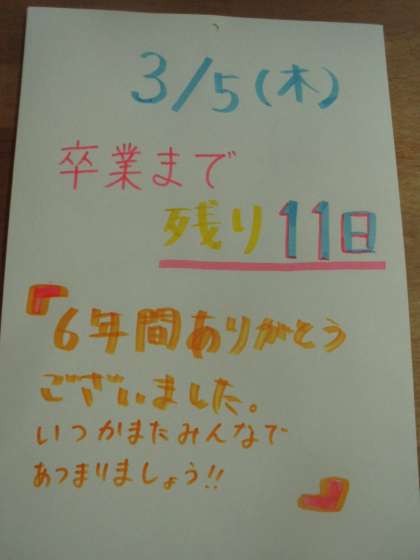 3/5(木)
卒業まで
残り11日
『6年間ありがとう
ございました。
いつかまたみんなで
あつまりましょう!!
』